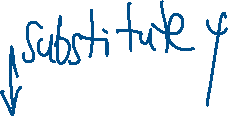 substitute y